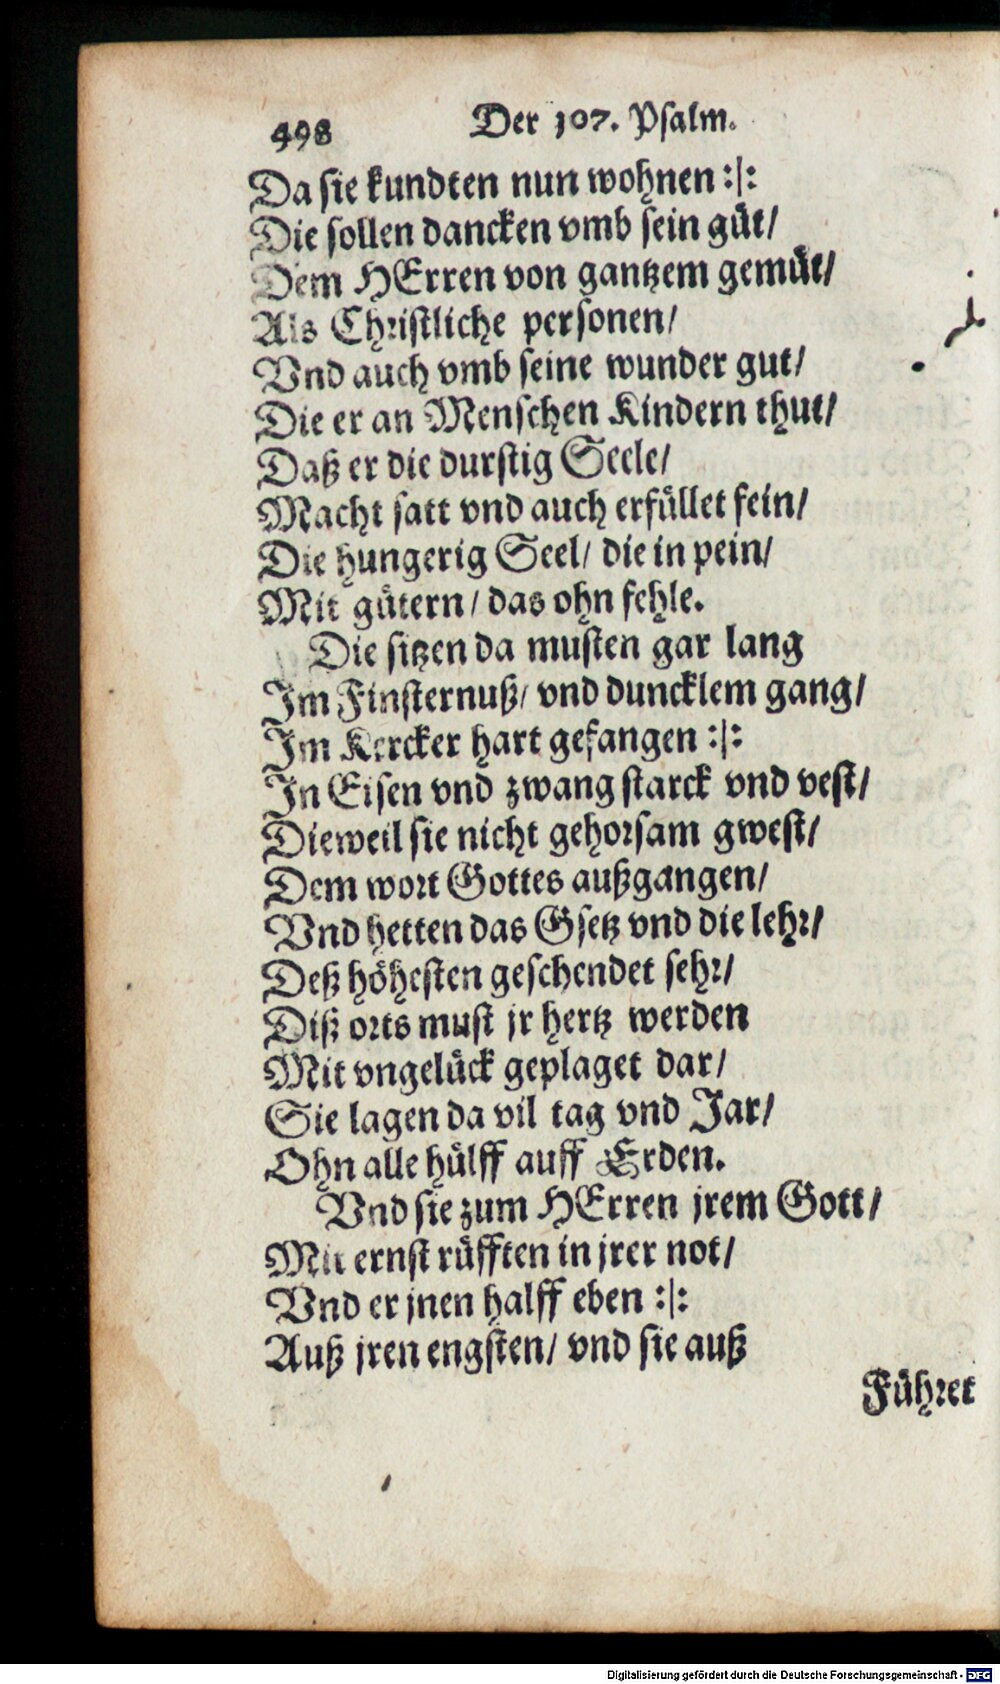 498 Der 107. Psalm.
Da sie kundten nun wohnen :|:
Die sollen dancken vmb sein güt/
Dem HErren von gantzem gemüt/
Als Christliche personen/
Vnd auch vmb seine wunder gut/
Die er an Menschen Kindern thut/
Daß er die durstig Seele/
Macht satt vnd auch erfüllet fein/
Die hungerig Seel/ die in pein/
Mit gütern/ das ohn fehle.
Die sitzen da musten gar lang
Im Finsternuß/ vnd duncklem gang/
Im Kercker hart gefangen :|:
In Eisen vnd zwang starck vnd vest/
Dieweil sie nicht gehorsam gwest/
Dem wort Gottes außgangen/
Vnd hetten das Gsetz vnd die lehr/
Deß höhesten geschendet sehr/
Diß orts must jr hertz werden
Mit vngelück geplaget dar/
Sie lagen da vil tag vnd Jar/
Ohn alle hülff auff Erden.
Vnd sie zum HErren jrem Gott/
Mit ernst rüfften in jrer not/
Vnd er jnen halff eben :|:
Auß jren engsten/ vnd sie auß
Führet
Digitalisierung gefördert durch die Deutsche Forschungsgemeinschaft - DFG